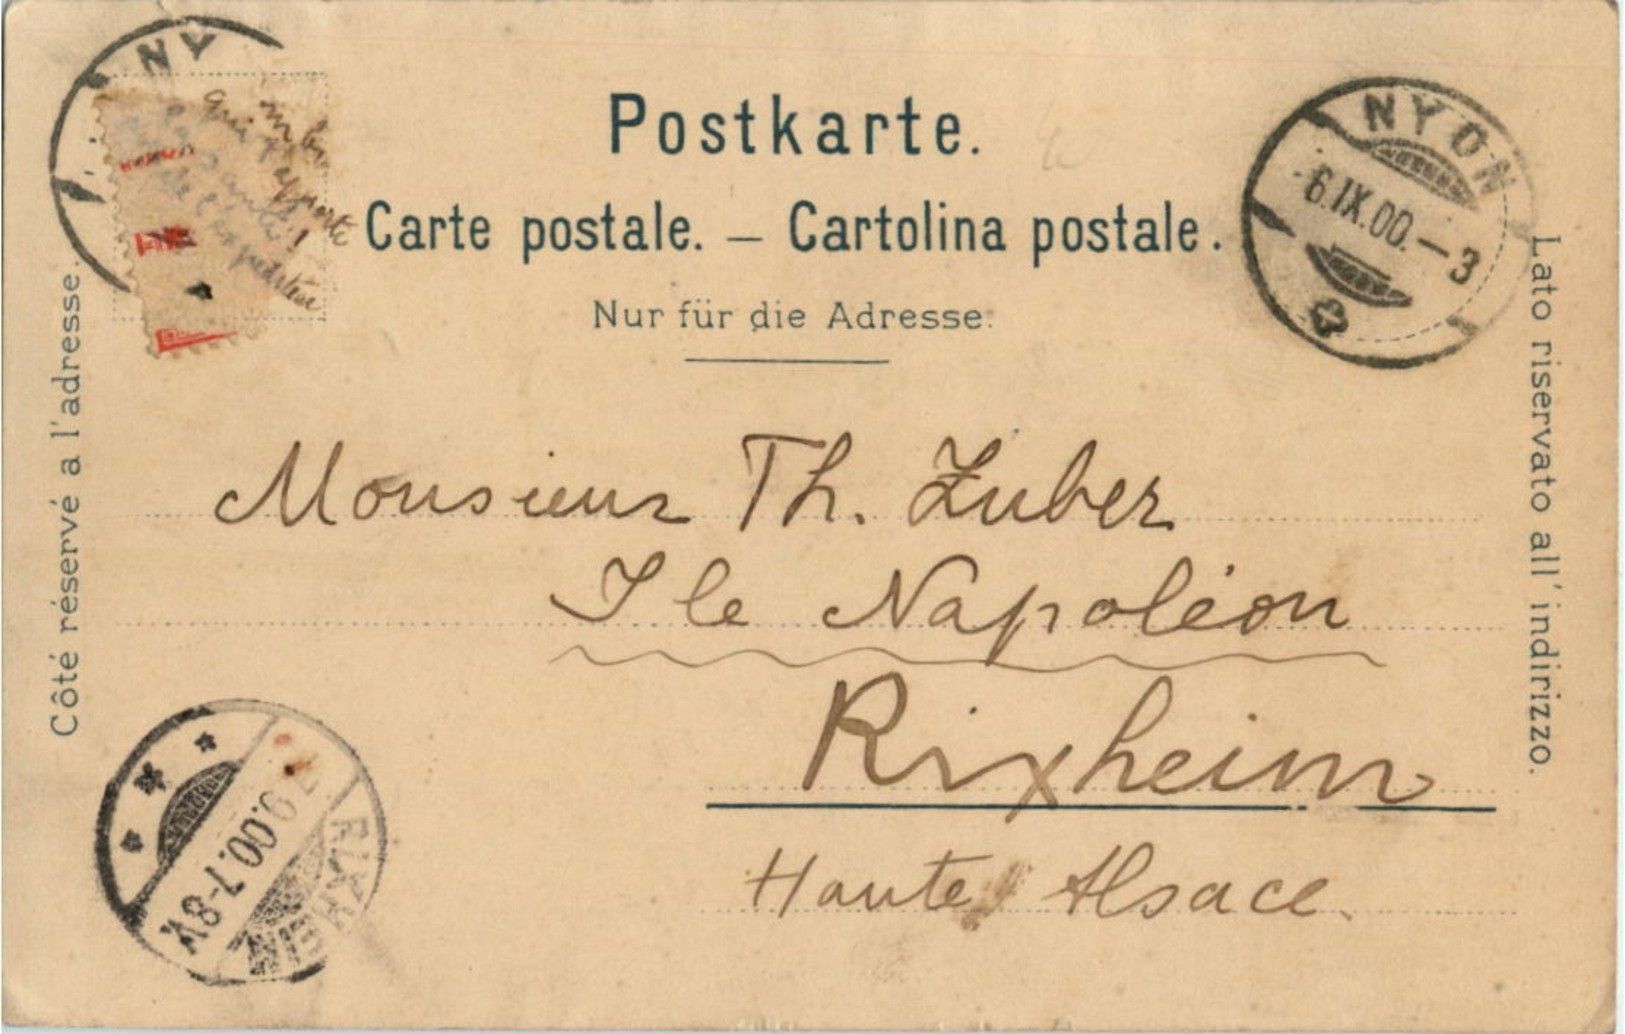 NY
Postkarte.
Carte postale. — Cartolina postale.
Nur für die Adresse.
NYON
6.IX.00.–3
Côté réservé à l'adresse.
Lato riservato all' indirizzo.
Monsieur Th. Zuber
Ile Napoléon
Rixheim
Haute Alsace.
RIXHEIM
7.9.00.7-8V.
de l'expéditeur